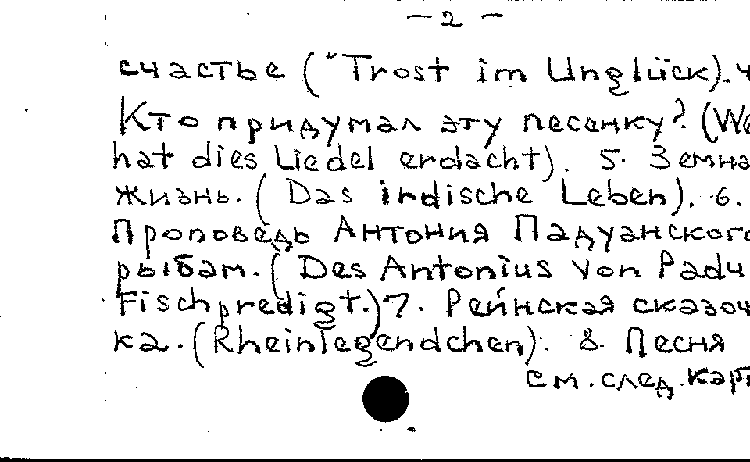 — 2 —
счастье ("Trost im Unglück). 4
Кто придумал эту песенку? (We
hat dies Liedel erdacht). 5. Земна
жизнь. (Das irdische Leben). 6.
Проповедь Антония Падуанского
рыбам. (Des Antonius von Padu
Fischpredigt.) 7. Рейнская сказоч
ка. (Rheinlegendchen). 8. Песня
см. след. карт